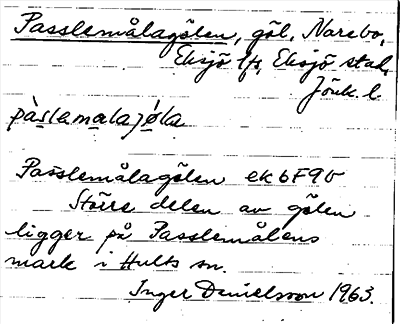 Passlemålagölen, göl, Narebo,
Eksjö lfs, Eksjö stad,
Jönk. l.
pàslamalajøla
Passlemålagölen ek 6F9b
Större delen av gölen
ligger på Passlemålens
mark i Hults sn.
Inger Danielsson 1963.